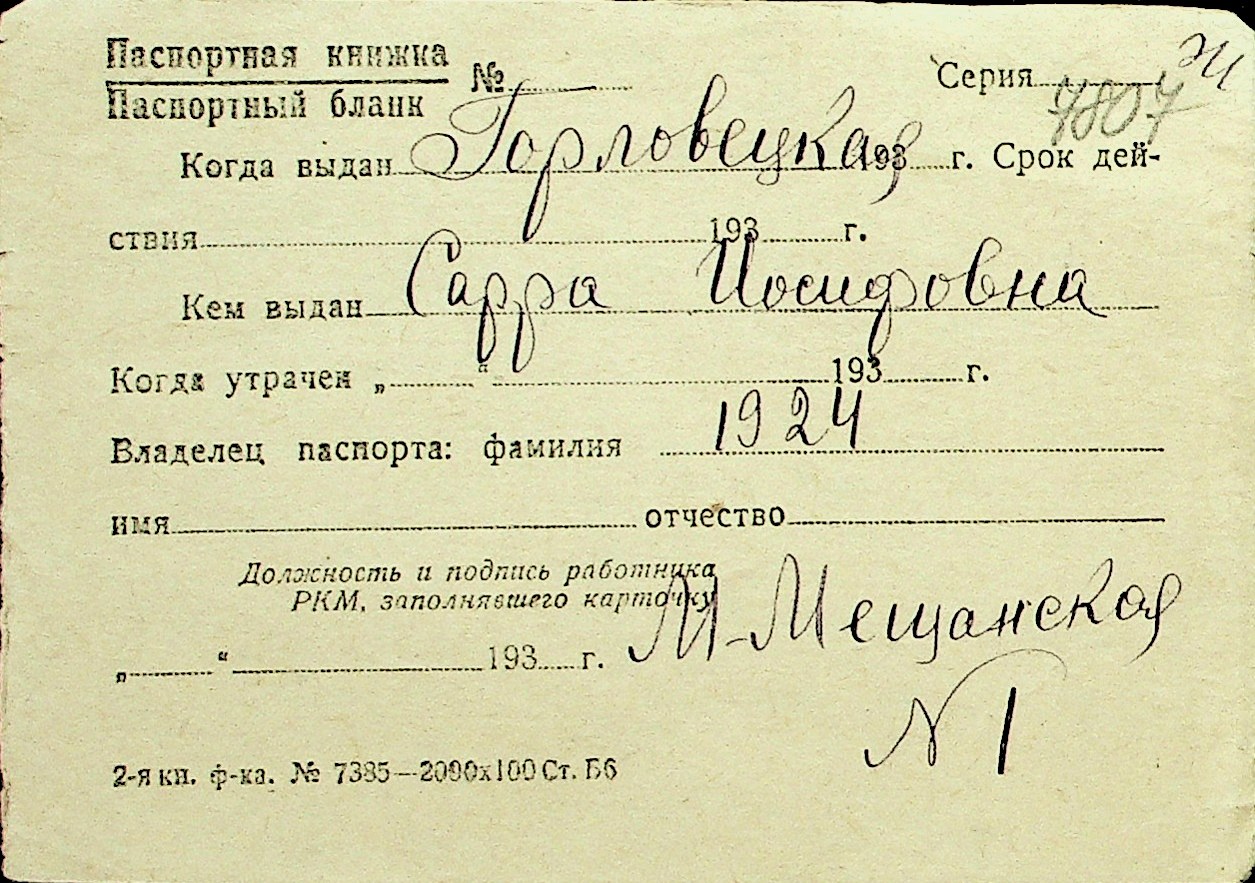 Паспортная книжка
Паспортный бланк № Серия Ж
7807
Горловецкая
Когда выдан 193 г. Срок дей-
ствия 193 г.
Сарра Иосифовна
Кем выдан
Когда утрачен „ “ 193 г.
1924
Владелец паспорта: фамилия
имя отчество
Должность и подпись работника
РКМ, заполнявшего карточку
М-Мещанская
„ “ 193 г.
N 1
2-я кн. ф-ка. № 7385—2000х100 Ст. Б6